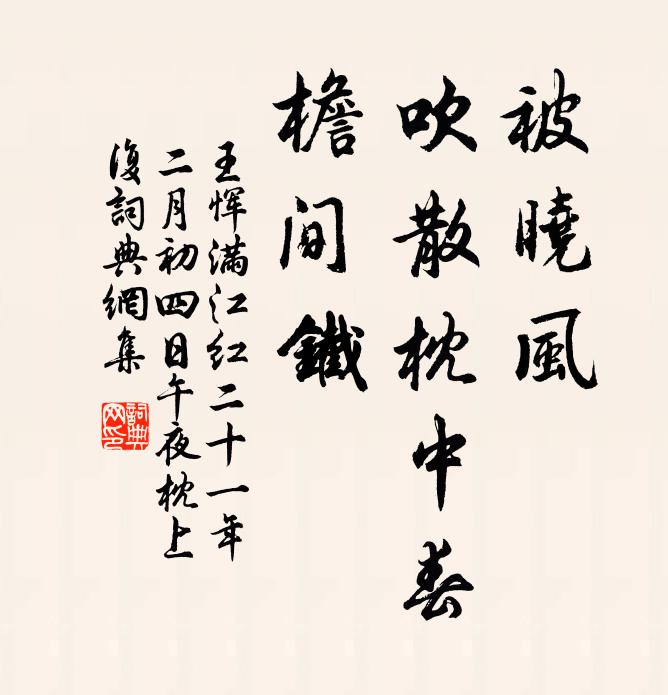 被曉風
吹散枕中春
檐間鐵
王惲滿江紅二十一年
二月初四日午夜枕上
復詞典網集
詞典
网印